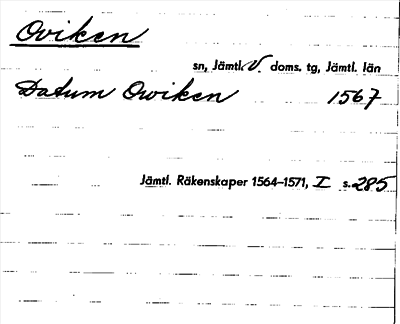 Oviken
sn, Jämtl. V. doms. tg, Jämtl. län
Datum Owiken 1567
Jämtl. Räkenskaper 1564–1571, I s. 285